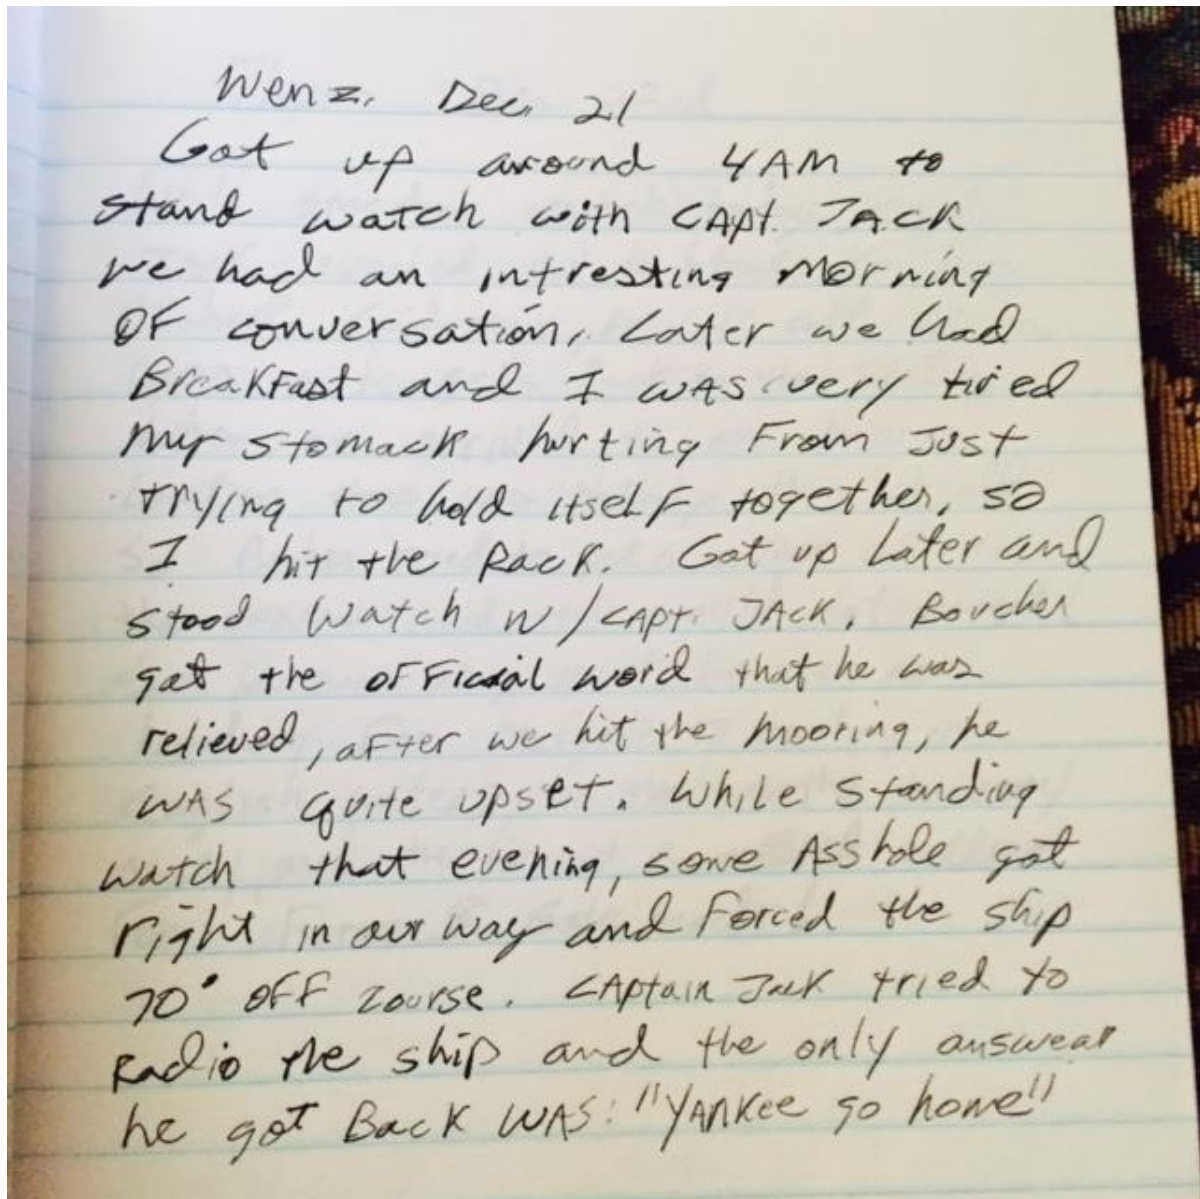 Wenz. Dec. 21
Got up around 4AM to
stand watch with CAPt. JACK
we had an intresting morning
OF conversation, Later we had
BreakFast and I WAS very tired
My stomack hurting From Just
trying to hold itself together, so
I hit the Rack. Got up Later and
stood Watch w/CAPt. JACK. Boucher
got the official word that he was
relieved, after we hit the mooring, he
WAS quite upset. While standing
watch that evening, some Asshole got
right in our way and Forced the ship
70° OFF course. CAptain Jack tried to
Radio the ship and the only answear
he got Back WAS: "YANKee go home"